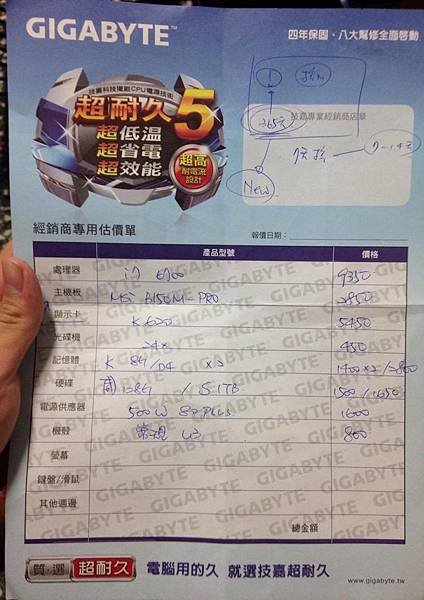 GIGABYTE™
四年保固、八大幫修全面啓動
技嘉科技獨創CPU電源技術
超耐久5
超低溫
超省電
超效能
超高
耐電流
設計
技嘉專業經銷商店章
New
經銷商專用估價單
報價日期:
產品型號 價格
處理器 i7 6700 9350
主機板 MSi B150M-PRO 2850
顯示卡 K620 5450
光碟機 24x 450
記憶體 K 8G/D4 x2 1400x2/2800
硬碟 128G / S 1TB 1500/1650
電源供應器 500W 80 PLUS 1600
機殼 常規 U3 800
螢幕
鍵盤/滑鼠
其他週邊
總金額
質·選 超耐久 電腦用的久 就選技嘉超耐久
www.gigabyte.tw